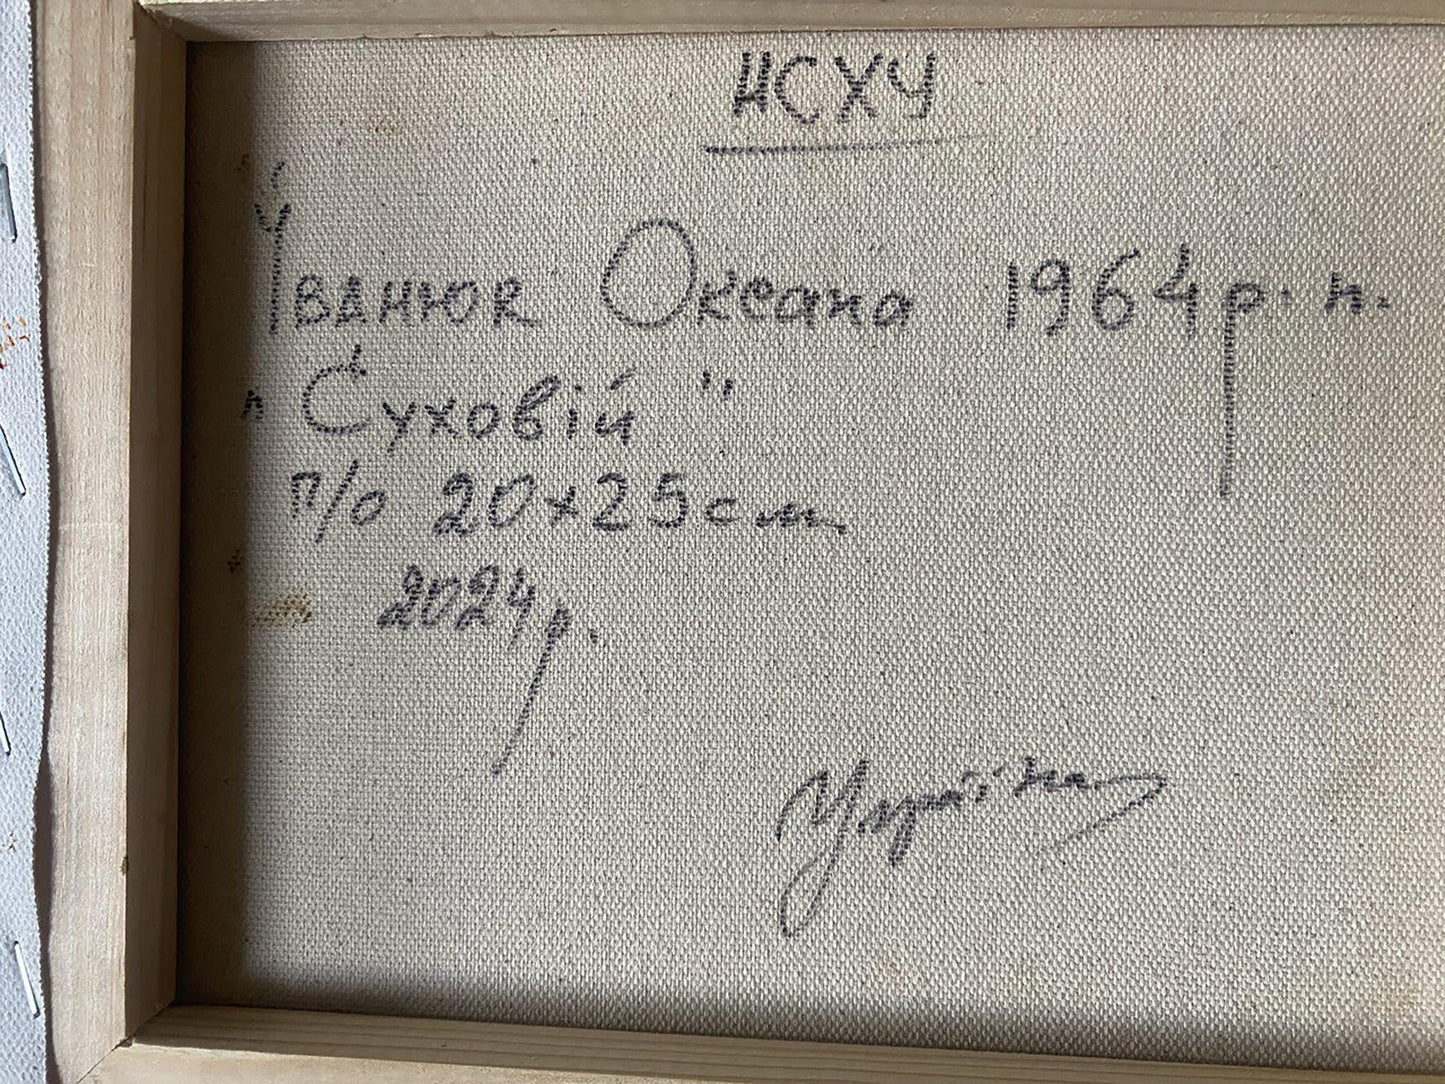 НСХУ
Іванюк Оксана 1964р. н.
"Суховій"
п/о 20х25см
2024р.
Україна